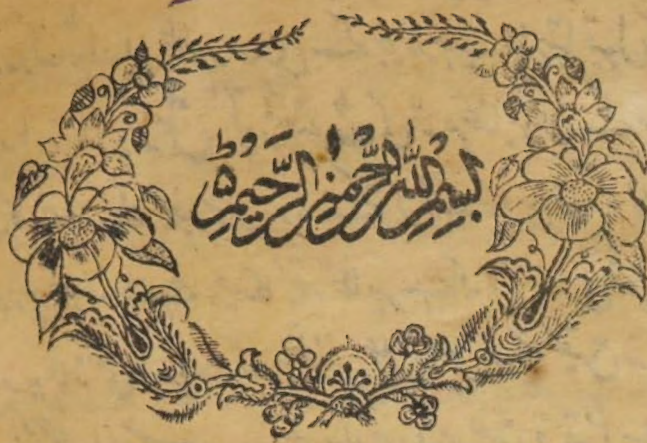 بِسْمِ اللّٰهِ الرَّحْمٰنِ الرَّحِيْمِ ۝ ط